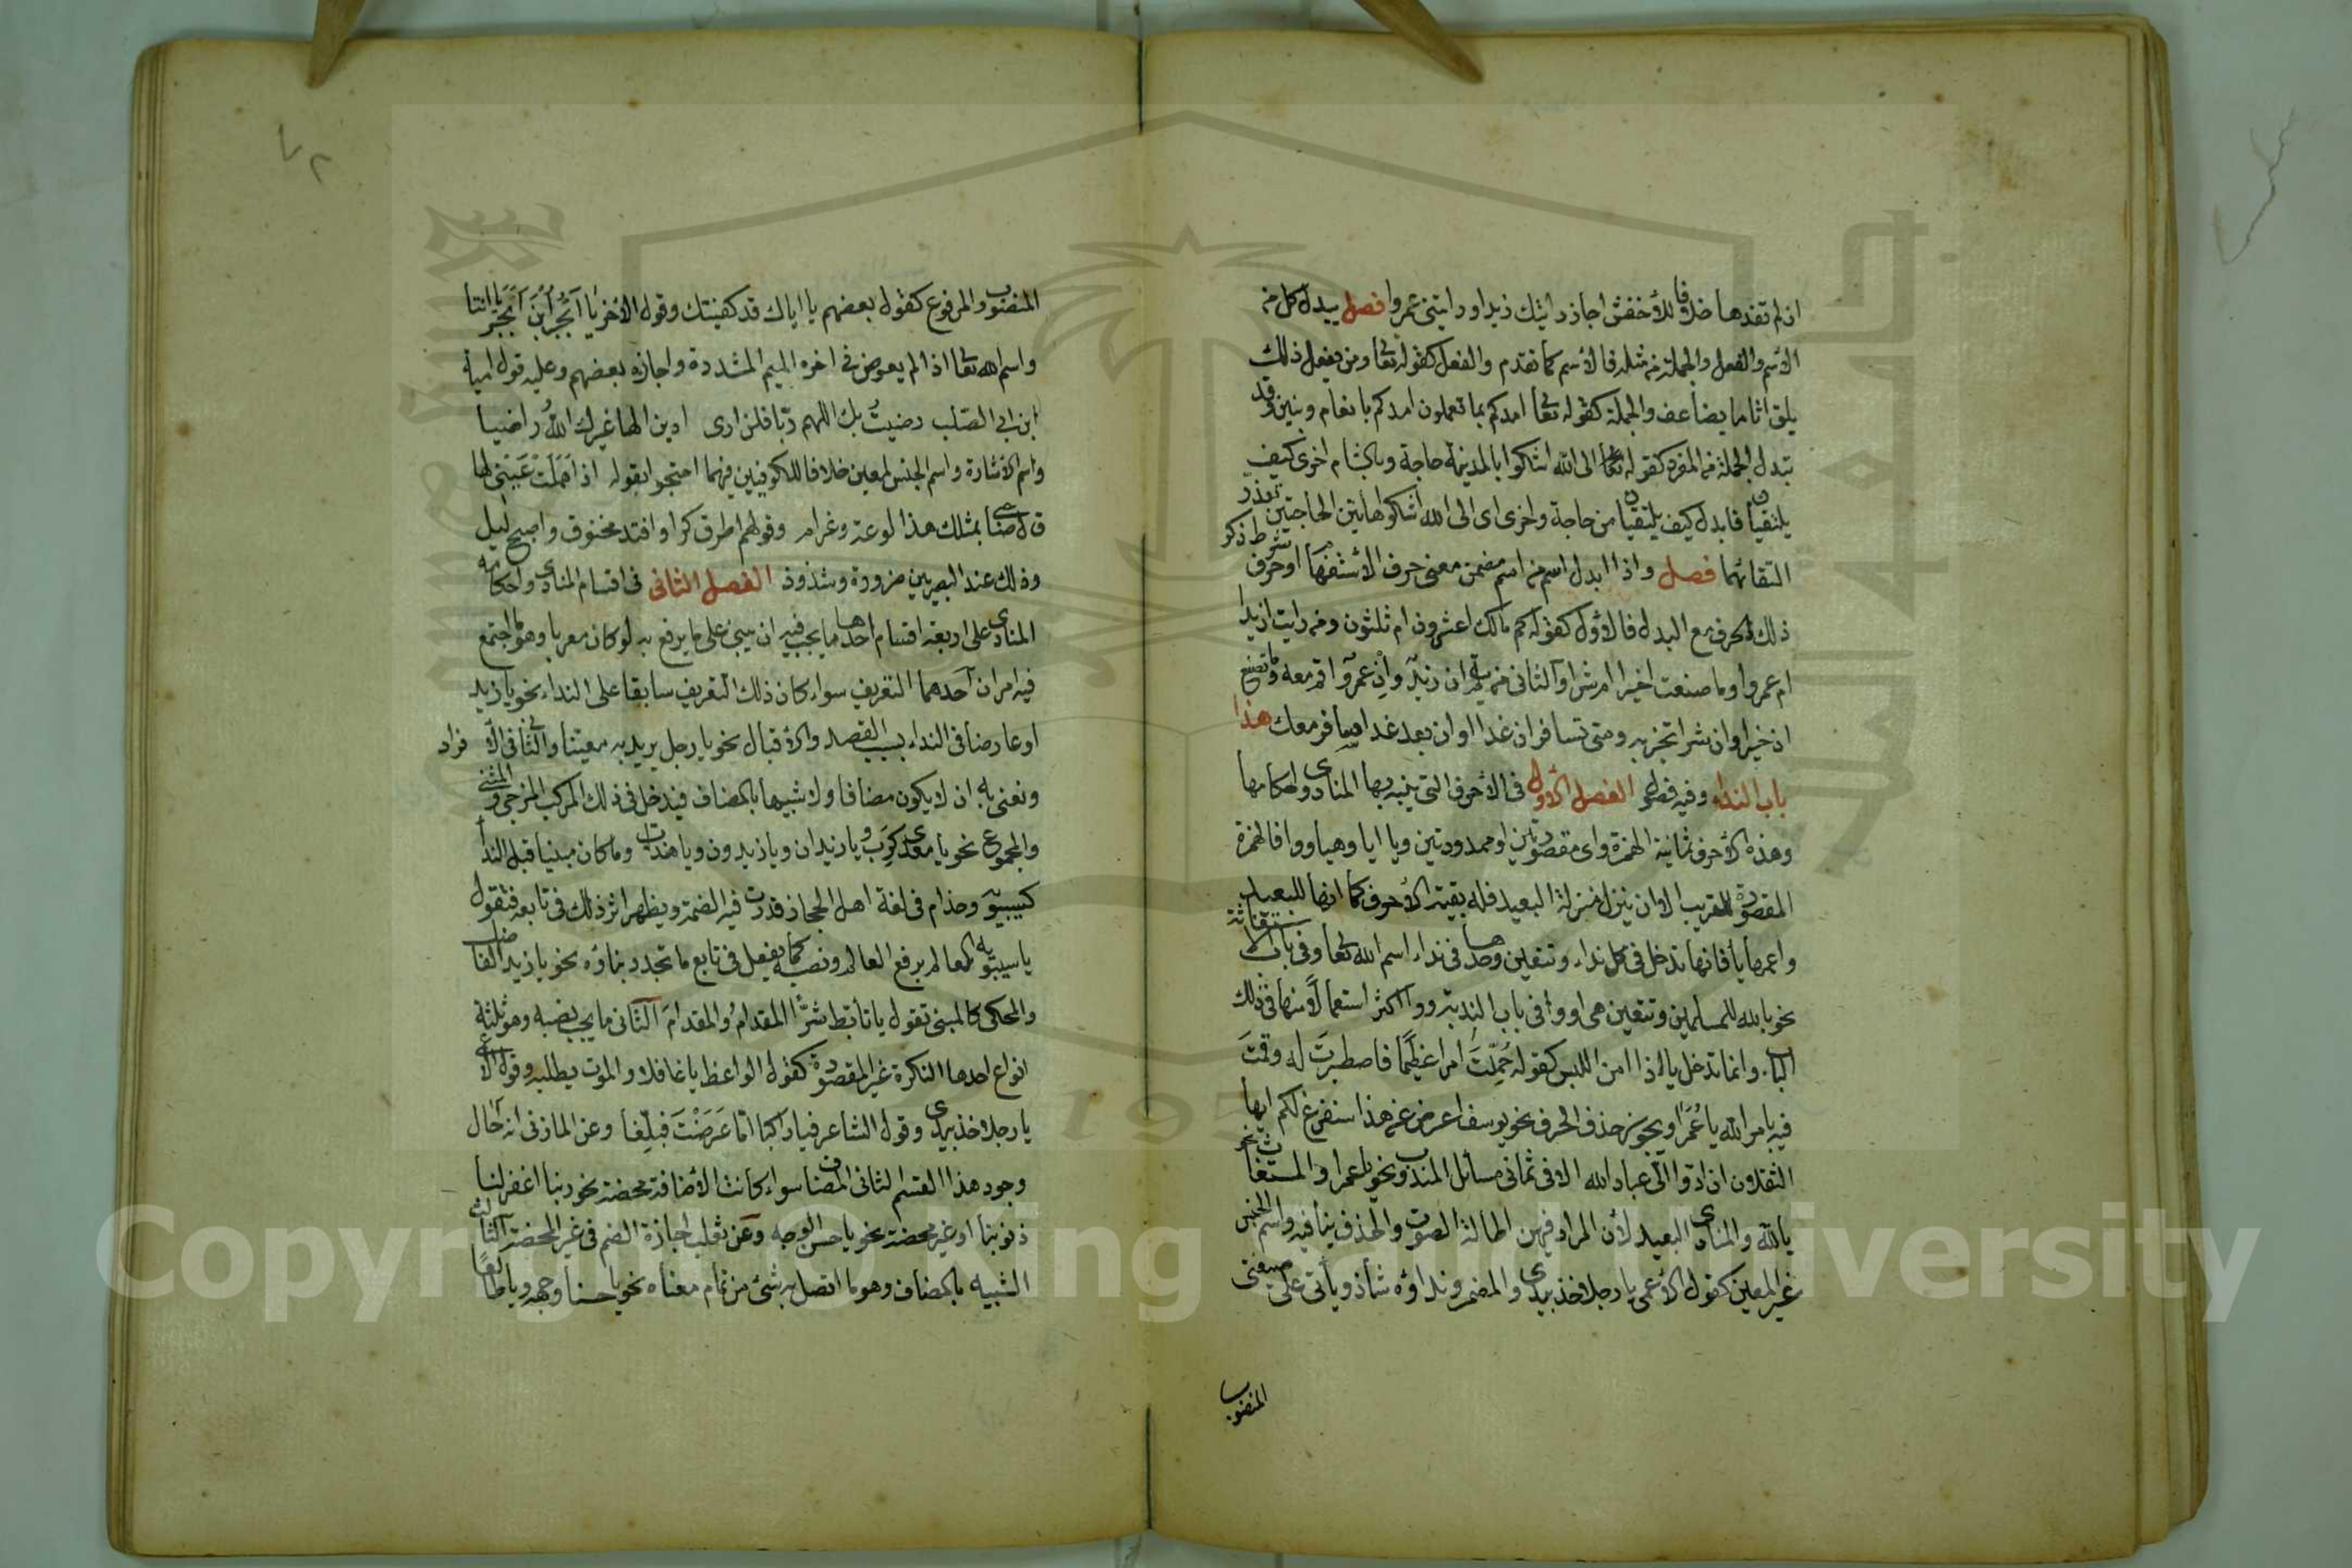 اذ لم تفدها خلافا للأخفش اجاز رايتك زيدا ورايتنى عمروا فصل يبدل كل من
الاسم والفعل والجملة من مثله فالاسم كما تقدم والفعل كقوله تعا ومن يفعل ذلك
يلق اثاما يضاعف والجملة كقوله تعا امدكم بما تعملون امدكم بانعام وبنين وقد
تبدل الجملة من المفرد كقوله الى الله اشكوا بالمدينة حاجة وبالشام اخرى كيف
يلتقيان فابدل كيف يلتقيان من حاجة واخرى اى الى الله اشكوا هاتين الحاجتين تعذر
التقائهما فصل واذا ابدل اسم من اسم مضمن معنى حرف الاستفهام او حرف شرط ذكر
ذلك الحرف مع البدل فالاول كقوله كم مالك اعشرون ام ثلثون ومن رايت ازيدا
ام عمروا وما صنعت اخيرا ام شرا والثانى من يقم ان زيد وان عمرو اقم معه وما تصنع
ان خيرا وان شرا تجز به ومتى تسافر ان غدا او ان بعد غد اسافر معك هذا
باب النداء وفيه فصول الفصل الاول فى الاحرف التى ينبه بها المنادى واحكامها
وهذه الاحرف ثمانية الهمزة واى مقصورتين او ممدودتين ويا ايا وهيا ووا فالهمزة
المقصورة للقريب الا ان ينزل منزلة البعيد فله بقية الاحرف كما انها للبعيد
واعمها يا فانها تدخل فى كل نداء وتتعين وحدها فى نداء اسم الله تعا وفى باب الاستغاثة
نحو يا لله للمسلمين وتتعين هى او وا فى باب الندبة ووا اكثر استعمالا منها فى ذلك
الباب وانما تدخل يا اذا امن اللبس كقوله حُمِلّتَ امرا عظيما فاصطبرتَ له وقمتَ
فيه بامر الله يا عُمَرا ويجوز حذف الحرف نحو يوسف اعرض عن هذا سنفرغ لكم ايها
الثقلان ان ادوا الىّ عباد الله الا فى ثمانى مسائل المندوب نحو يا عمرا والمستغاث نحو
يا لله والمنادى البعيد لأن المراد فيهن اطالة الصوت والحذف ينافيه واسم الجنس
غير المعين كقول الاعمى يا رجلا خذ بيدى والمضمر ونداؤه شاذ ويأتى على صيغتى
المنصوب
٧٢
المنصوب والمرفوع كقول بعضهم يا اياك قد كفيتك وقول الآخر يا اَبْجَرُ ابْنَ اَبْجَرٍ يا انتا
واسم الله تعا اذا لم يعوض فى اخره الميم المشددة واجازه بعضهم وعليه قول امية
ابن ابى الصلب رضيتُ بك اللهم ربا فلن ارى ادين الها غيرك اللهُ راضيا
واسم الاشارة واسم الجنس لمعين خلافا للكوفيين فيهما احتجوا بقوله اذا هَمَلَتْ عَيْنى لها
قال صاحبى بمثلك هذا لوعة وغرام وقولهم اطرق كرا وافتد مخنوق واصبح ليل
وذلك عند البصريين ضرورة وشذوذ الفصل الثانى فى اقسام المنادى واحكامه
المنادى على اربعة اقسام احدها ما يجب فيه ان يبنى على ما يرفع به لو كان معربا وهو ما اجتمع
فيه امران احدهما التعريف سواء كان ذلك التعريف سابقا على النداء نحو يا زيد
او عارضا فى النداء بسبب القصد والاقبال نحو يا رجل يريد به معينا والثانى الافراد
ونعنى به ان لا يكون مضافا ولا شبيها بالمضاف فيدخل فى ذلك المركب المزجى والمثنى
والمجموع نحو يا معدى كرب ويا زيدان ويا زيدون ويا هندات وما كان مبنيا قبل النداء
كسيبويه وحذام فى لغة اهل الحجاز قدرت فيه الضمة ويظهر اثر ذلك فى تابعه فتقول
يا سيبويه العالم برفع العالم ونصبه كما يفعل فى تابع ما تجدد بناؤه نحو يا زيد الفاضل
والمحكى كالمبنى تقول يا تأبّط شرّا المقدامُ والمقدامَ الثانى ما يجب نصبه وهو ثلثة
انواع احدها النكرة غير المقصودة كقول الواعظ يا غافلا والموت يطلبه وقول الاعمى
يا رجلا خذ بيدى وقول الشاعر فيا راكبا امّا عَرَضْتَ فبلّغا وعن المازنى انه احال
وجود هذا القسم الثانى المضاف سواء كانت الاضافة محضة نحو ربنا اغفر لنا
ذنوبنا او غير محضة نحو يا حسن الوجه وعن ثعلب اجازة الضم فى غير المحضة الثالث
الشبيه بالمضاف وهو ما اتصل به شىء من تمام معناه نحو يا حسنا وجهه ويا طالعا
Copyright © King Saud University